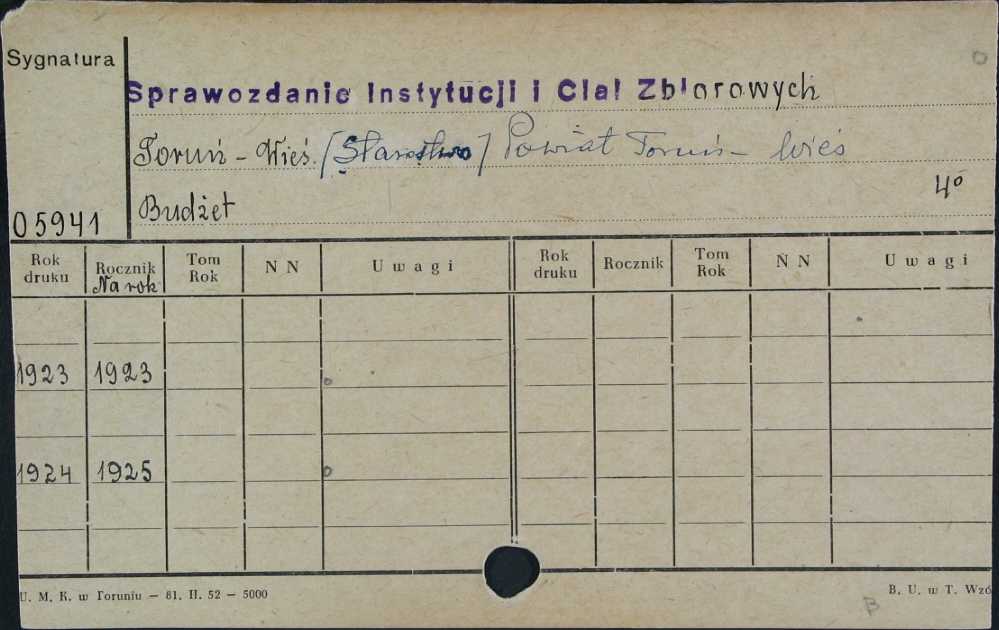 Sygnatura
Sprawozdanie Instytucji i Ciał Zbiorowych
Toruń – Wieś. (Starostwo) Powiat Toruń – Wieś
4º
Budżet
05941
Rok druku Rocznik Na rok Tom Rok N N Uwagi Rok druku Rocznik Tom Rok N N Uwagi
1923 1923
1924 1925
U. M. K. w Toruniu — 81. II. 52 — 5000
B. U. w T. Wzó
B